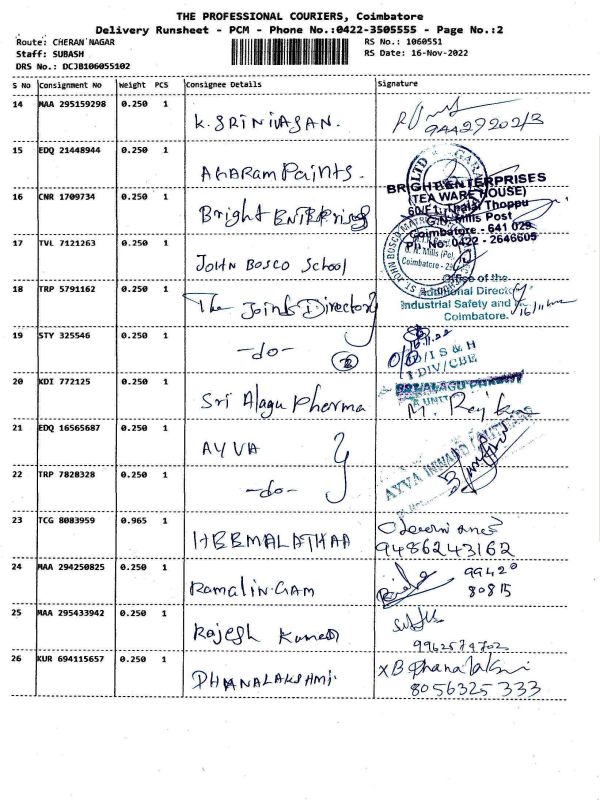 THE PROFESSIONAL COURIERS, Coimbatore
Delivery Runsheet - PCM - Phone No.:0422-3505555 - Page No.:2
Route: CHERAN NAGAR
Staff: SUBASH
DRS No.: DCJB106055102
RS No.: 10605S1
RS Date: 16-Nov-2022
S No Consignment No Weight PCS Consignee Details Signature
14 MAA 295159298 0.250 1 K. SRINIVASAN.
15 EDQ 21448944 0.250 1 AGARam Paints.
16 CNR 1709734 0.250 1 Bright Enterprises
BRIGHT ENTERPRISES
(TEA WARE HOUSE)
60/F1, Thalai Thoppu
G.N. Mills Post
Coimbatore - 641 029
Ph. No: 0422 - 2646605
17 TVL 7121263 0.250 1 JOHN BOSCO School
18 TRP 5791162 0.250 1 The Joint Directory
Office of the
Additional Director
Industrial Safety and
Coimbatore.
19 STY 325546 0.250 1 -do- 2
16.11.22
I S & H
I DIV/CBE
20 KDI 772125 0.250 1 Sri Alagu Pharma
21 EDQ 16565687 0.250 1 AYVA
AYVA INWARD
22 TRP 7828328 0.250 1 -do-
23 TCG 8083959 0.965 1 HEEMALATHAA
9486243162
24 MAA 294250825 0.250 1 RamalinGAM
99420
80815
25 MAA 295433942 0.250 1 Rajesh Kumar
26 KUR 694115657 0.250 1 DHANALAKSHMI.
8056325333